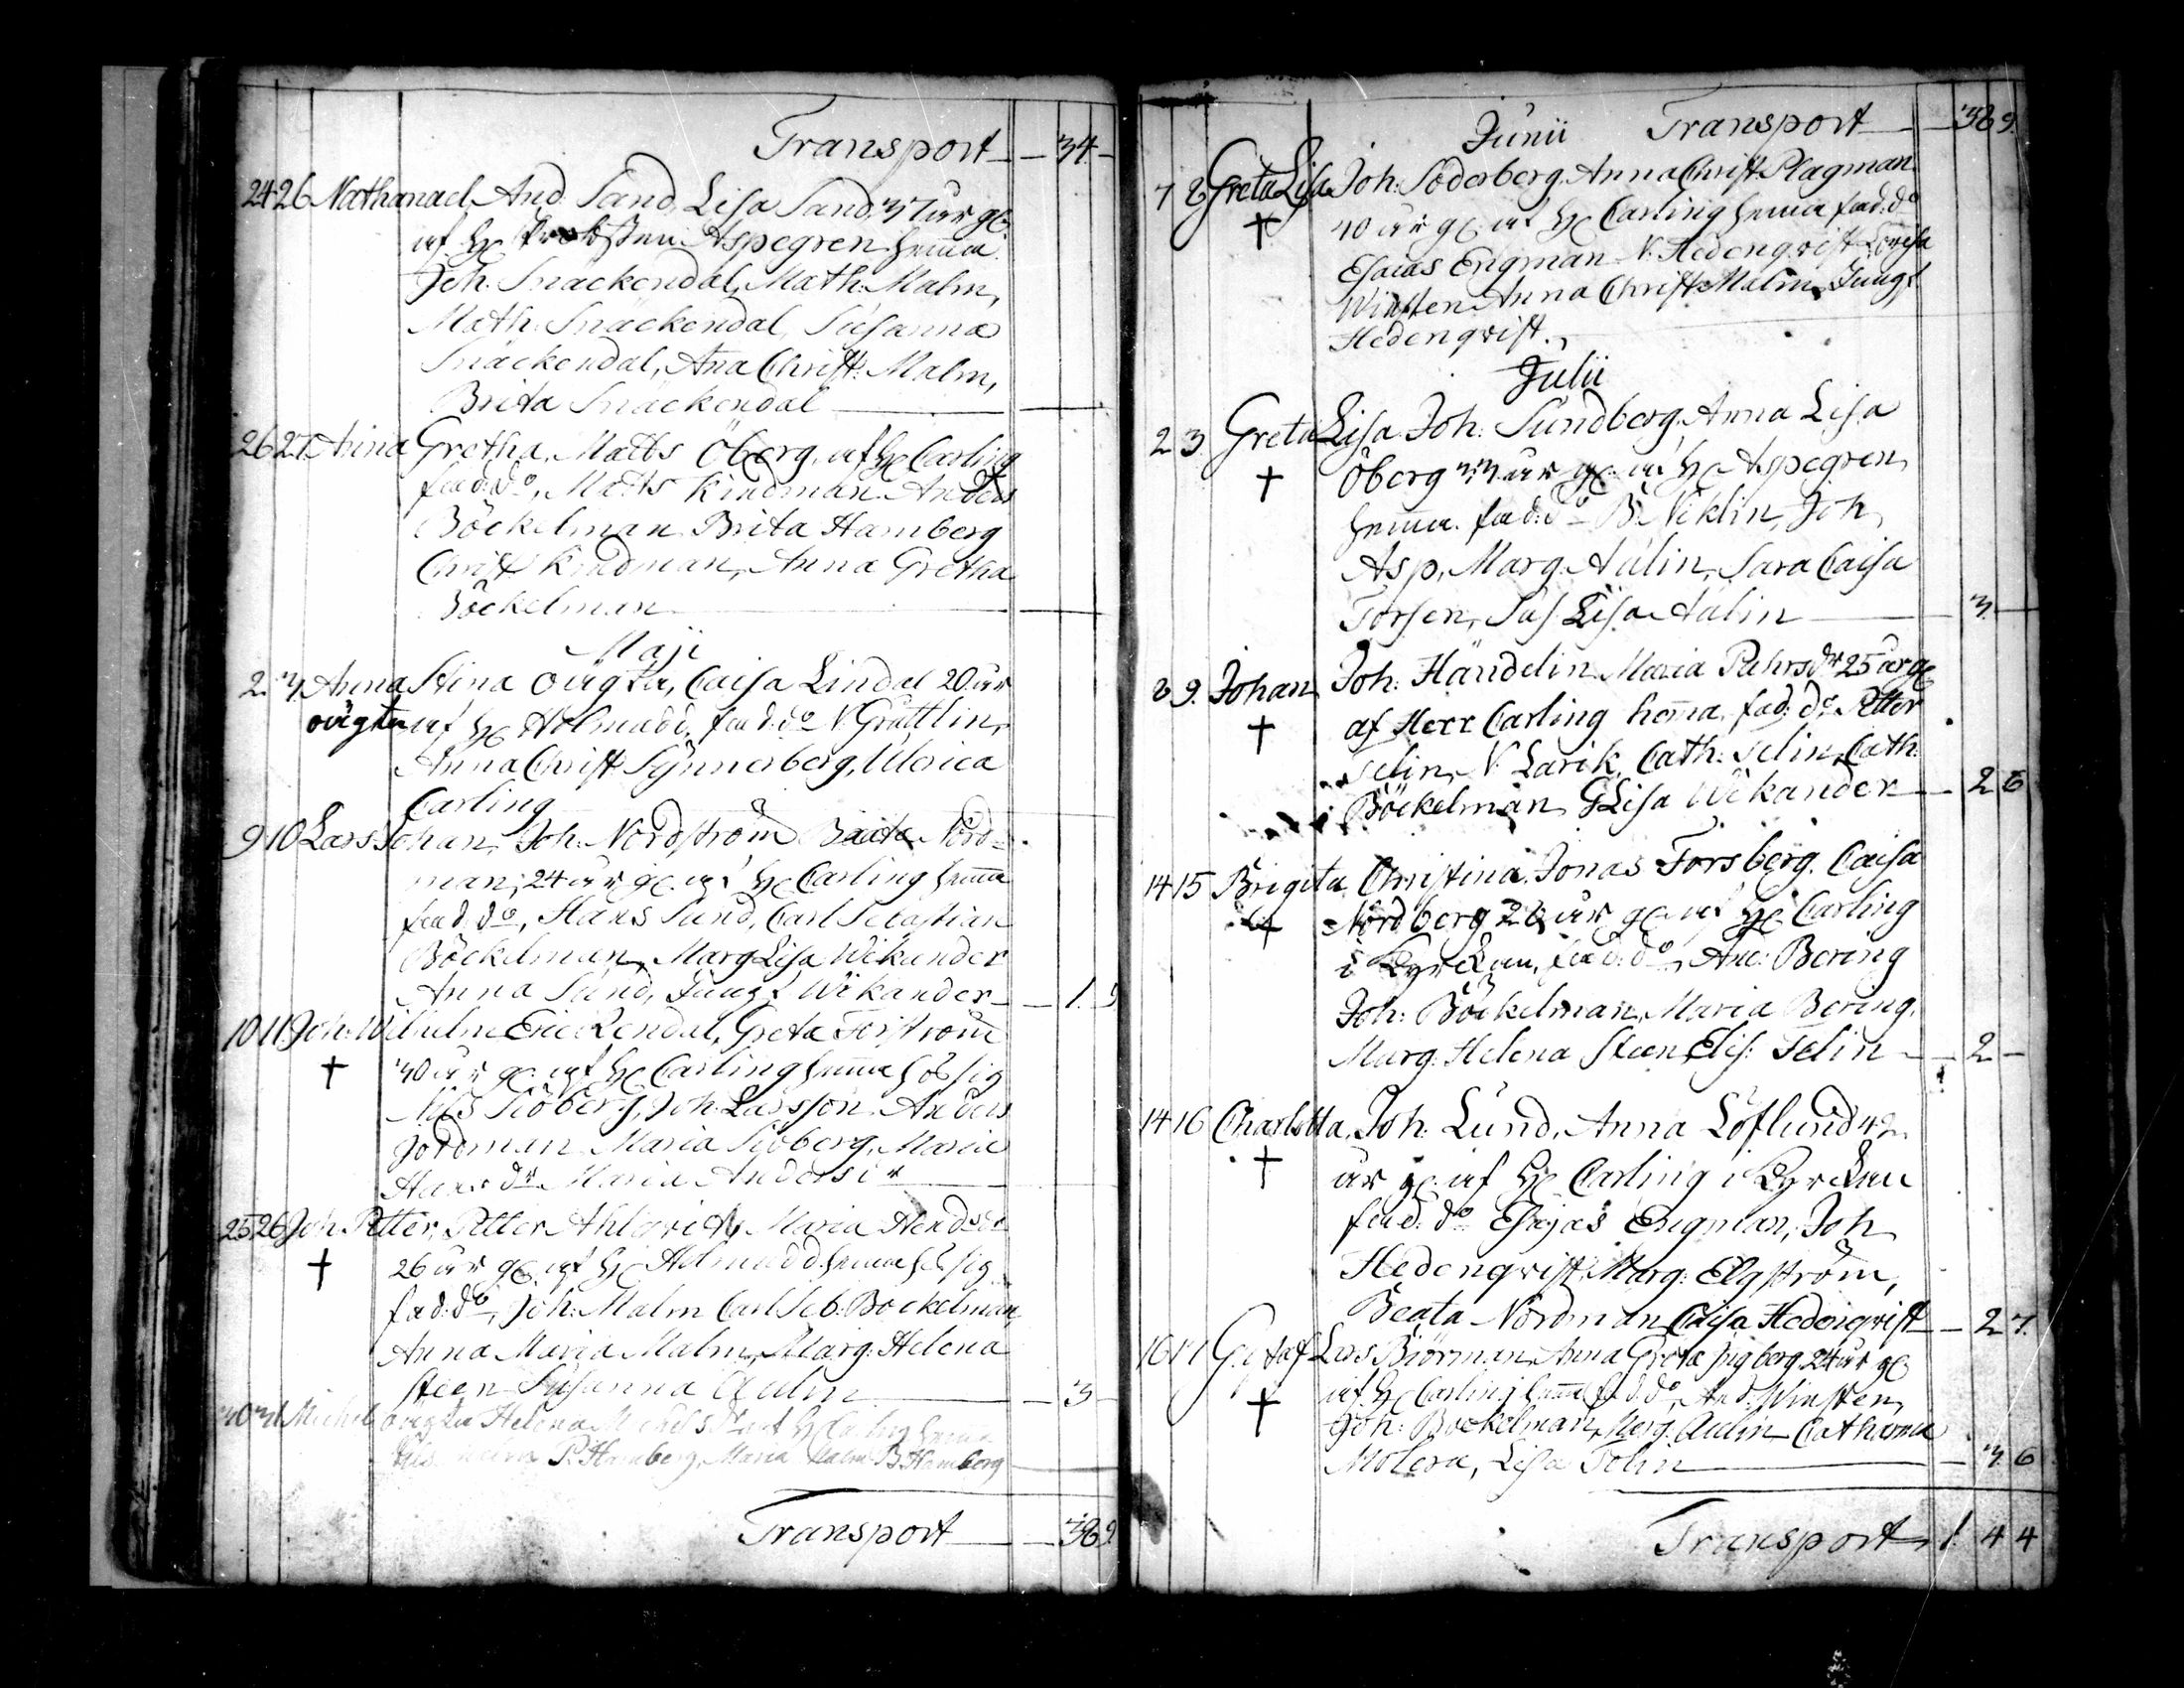 Transport — 34 —
24 26 Nathanael And. Sand, Lisa Sand, 37 år gl.
af H. Probsten Aspegren hema.
Joh. Snäckendal, Math. Malm,
Math. Snäckendal, Susanna
Snäckendal, Ana Christ: Malm,
Brita Snäckendal
26 27 Anna Gretha, Matts Öberg, af H. Carling
fad: do, Matts Kindman Anders
Böckelman Brita Hamberg
Christ Kindman, Anna Gretha
Böckelman
Maji
2. 3. Anna Stina oägta, Caisa Lindal 20 år
oägta af H. Holmudd, fad. do N. Gråttlin,
Anna Christ Synnerberg, Ulrica
Carling
9 10 Lars Johan, Joh. Nordström Beata Nord-
man, 24 år gl. af H. Carling hema
fad. do, Hans Sund, Carl Sebastian
Böckelman, Marg Lisa Wikander
Anna Sund, Jungf. Wikander — 1. 9
10 11 Joh. Wilhelm Eric Rendal, Greta Forström
† 40 år gl. af H. Carling hema hos sig
Nils Siöberg, Joh. Larsson Anders
Jordman Maria Siöberg, Maria
Hans dr Maria Anders dr
25 26 Joh. Petter, Petter Ahlqvist, Maria Hendsdr
† 26 år gl. af H. Holmudd hema hos sig
fad: do, Joh: Malm Carl Seb: Böckelman,
Anna Maria Malm, Marg: Helena
Steen Susanna Aulin — 3 —
30 31 Michel oägta Helena Michelsdr af H. Carling hema
Nils Malm P. Hamberg, Maria Malm B. Hamberg
Transport — 38 9.
Junii Transport — 38 9.
7 8 Greta Lisa Joh: Söderberg. Anna Christ Plagman
† 40 år gl. af H. Carling hema fad: do
Esaias Engman N. Hedenqvist Lovisa
Winsten Anna Christ Malm, Jungf.
Hedenqvist.
Julii
2 3 Greta Lisa Joh: Sundberg. Anna Lisa
† Öberg 33 år gl. af H. Aspegren
hema. fad: do B. Wiklin, Joh,
Asp, Marg. Aulin, Sara Caisa
Forsen, Sus Lisa Aulin — 3. —
8 9. Johan Joh. Händelin Maria Pehrsdr 25 år gl.
† af Herr Carling hema. fad. do Petter
Selin, N. Larik, Cath: Selin, Cath:
Böckelman G Lisa Wikander — 2 6
14 15 Brigita Christina. Jonas Forsberg. Caisa
† Nordberg 28 år gl. af H. Carling
i Kyrckan, fad: do, And: Bering
Joh: Böckelman, Maria Bering,
Marg: Helena Steen, Elis: Felin — 2 —
14 16 Charlotta, Joh. Lund, Anna Löflund 42
† år gl. af H. Carling i Kyrckan
fad: do Esajas Engman, Joh
Hedenqvist, Marg: Elgström,
Beata Nordman Caisa Hedenqvist — 2 7.
16 17 Gustaf Lars Biörman, Anna Greta Sigberg 24 år gl.
† af H. Carling hema fad. do, And: Winsten,
Joh: Böckelman, Marg. Aulin Catharina
Molera, Lisa Tolin — 3. 6
Transport, 1. 4 4